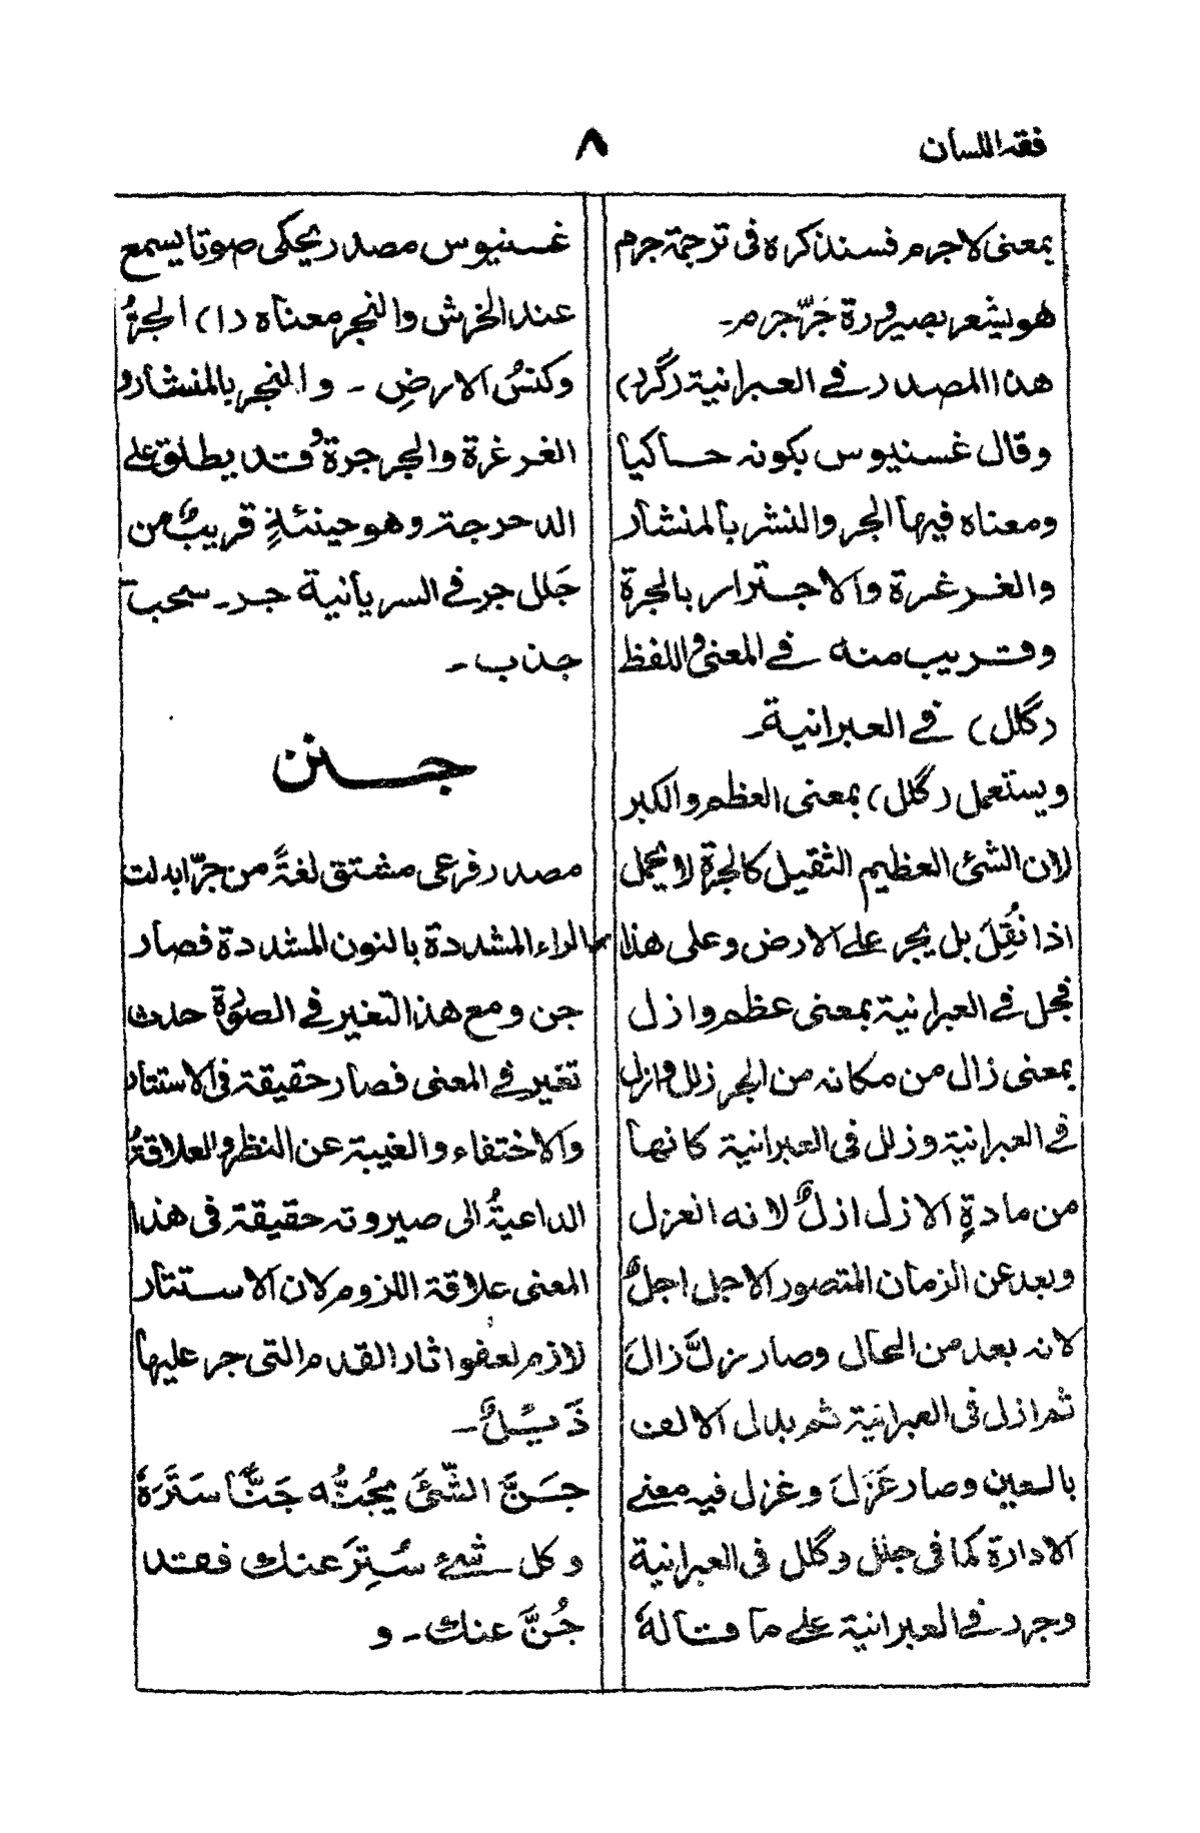 فقه اللسان
٨
بمعنى لاجرم فسنذكره فى ترجمة جرم
هو يشعر بصيرورة جَرّ جرم۔
هذا المصدر فے العبرانية (گرر)
وقال غسنيوس بكونه حاكيا
ومعناه فيها الجر والنشر بالمنشار
والغرغرة والاجترار بالجرة
وقريب منه فے المعنى واللفظ
(گلل) فے العبرانية۔
ويستعمل (گلل) بمعنى العظم والكبر
لان الشئ العظيم الثقيل كالجرة لا يحمل
اذا نُقِلَ بل يجر علے الارض وعلى هذا
فجل فے العبرانية بمعنى عظم وازل
بمعنى زال من مكانه من الجر زلل وازل
فے العبرانية وزلل فى العبرانية كانها
من مادةِ الازل ازلٌ لانه انعزل
وبعد عن الزمان المتصور الاجل اجلٌ
لانه بعد من الحال وصار زلَّ زالَ
ثم ازل فى العبرانية ثم بدل الالف
بالعين وصار عَزَلَ وغزل فيه معنے
الادارة كما فى جلل وگلل فى العبرانية
وجرر فے العبرانية علے ما قاله
غسنيوس مصدر يحكى صوتا يسمع
عند الخرش والنجر معناه (١) الجرُّ
وكنسُ الارضِ ۔ والنجر بالمنشار و
الغرغرة والجرجرةُ وقد يطلق علے
الدحرجة وهو حينئذٍ قريبٌ من
جَلل جر فے السريانية جر۔ سحب
جذب۔
جنن
مصدر فرعى مشتق لغةً من جرّ ابدلت
الراء المشددة بالنون المشددة فصار
جن ومع هذا التغير فے الصُّورة حدث
تغير فے المعنى فصار حقيقة فى الاستتار
والاختفاء والغيبة عن النظر والعلاقةُ
الداعيةُ الى صيروته حقيقة فى هذا
المعنى علاقة اللزوم لان الاستتار
لازم لعفو اثار القدم التى جر عليها
ذَيلٌ۔
جَنَّ الشّئَ يَجُنُّه جَنًّا سَتَرَهٗ
وكل شئے سُتِرَ عنك فقد
جُنَّ عنك۔ و